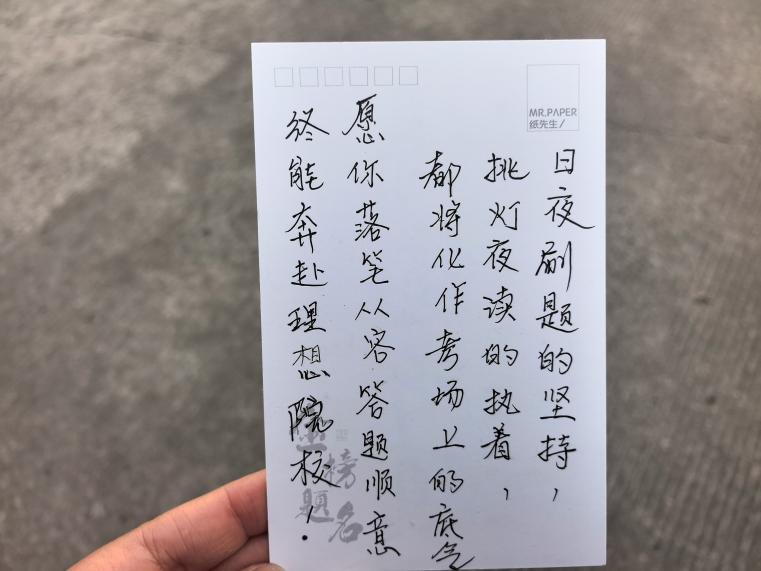 MR.PAPER
纸先生/
日夜刷题的坚持，
挑灯夜读的执着，
都将化作考场上的底气
愿你落笔从容答题顺意
终能奔赴理想院校！
金榜
题名